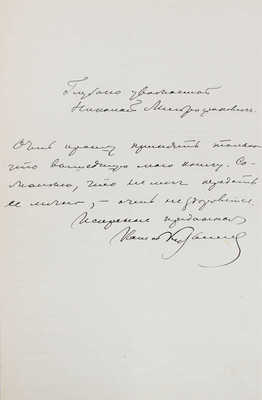 Глубоко уважаемый
Николай Митрофанович.
Очень прошу принять только
что вышедшую мою книгу. Со-
жалею, что не могу передать
ее лично, – очень нездоровится.
Искренне преданная